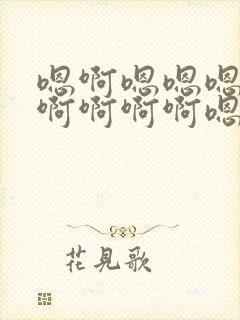 嗯啊嗯嗯嗯
啊啊啊啊嗯
花見歌